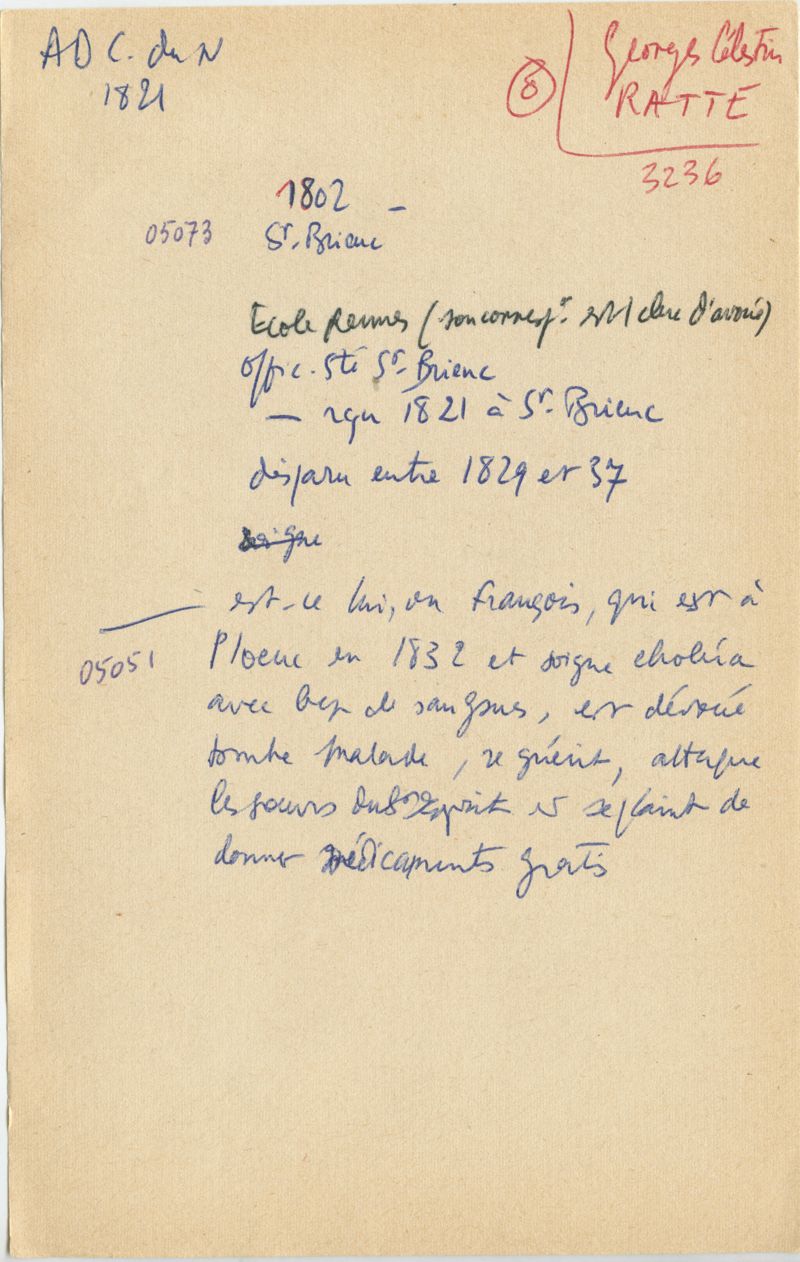 AD C. du N
1821
8
Georges Célestin
RATTE
3236
1802 -
05073
St. Brieuc
Ecole Rennes (son corresp.t est clerc d'avoué)
Offic. Sté St. Brieuc
— reçu 1821 à St. Brieuc
disparu entre 1829 et 37
soigne
est-ce lui, ou François, qui est à
05051
Ploeuc en 1832 et soigne choléra
avec bcp de sangsues, est dévoué
tombe malade, se guérit, attaque
les soeurs du St Esprit et se plaint de
donner médicaments gratis